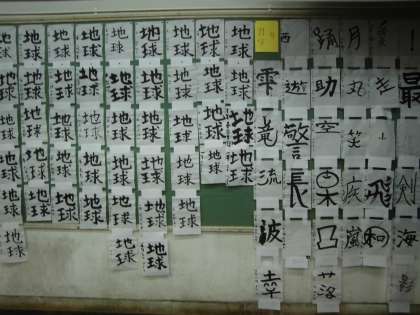 地球 地球 地球 地球 地球 地球 地球 地球 地球
地球 地球 地球 地球 地球 地球 地球 地球 地球
地球 地球 地球 地球 地球 地球 地球 地球 地球
地球 地球 地球 地球 地球 地球 地球 地球 地球
地球 地球 地球 地球 地球 地球 地球
地球 地球 地球
西 踊 月
雫 遊 助 丸 走 最
竜 警 空 笑 上
流 長 果 疾 飛
波 凸 嵐 和 海
幸 落 影